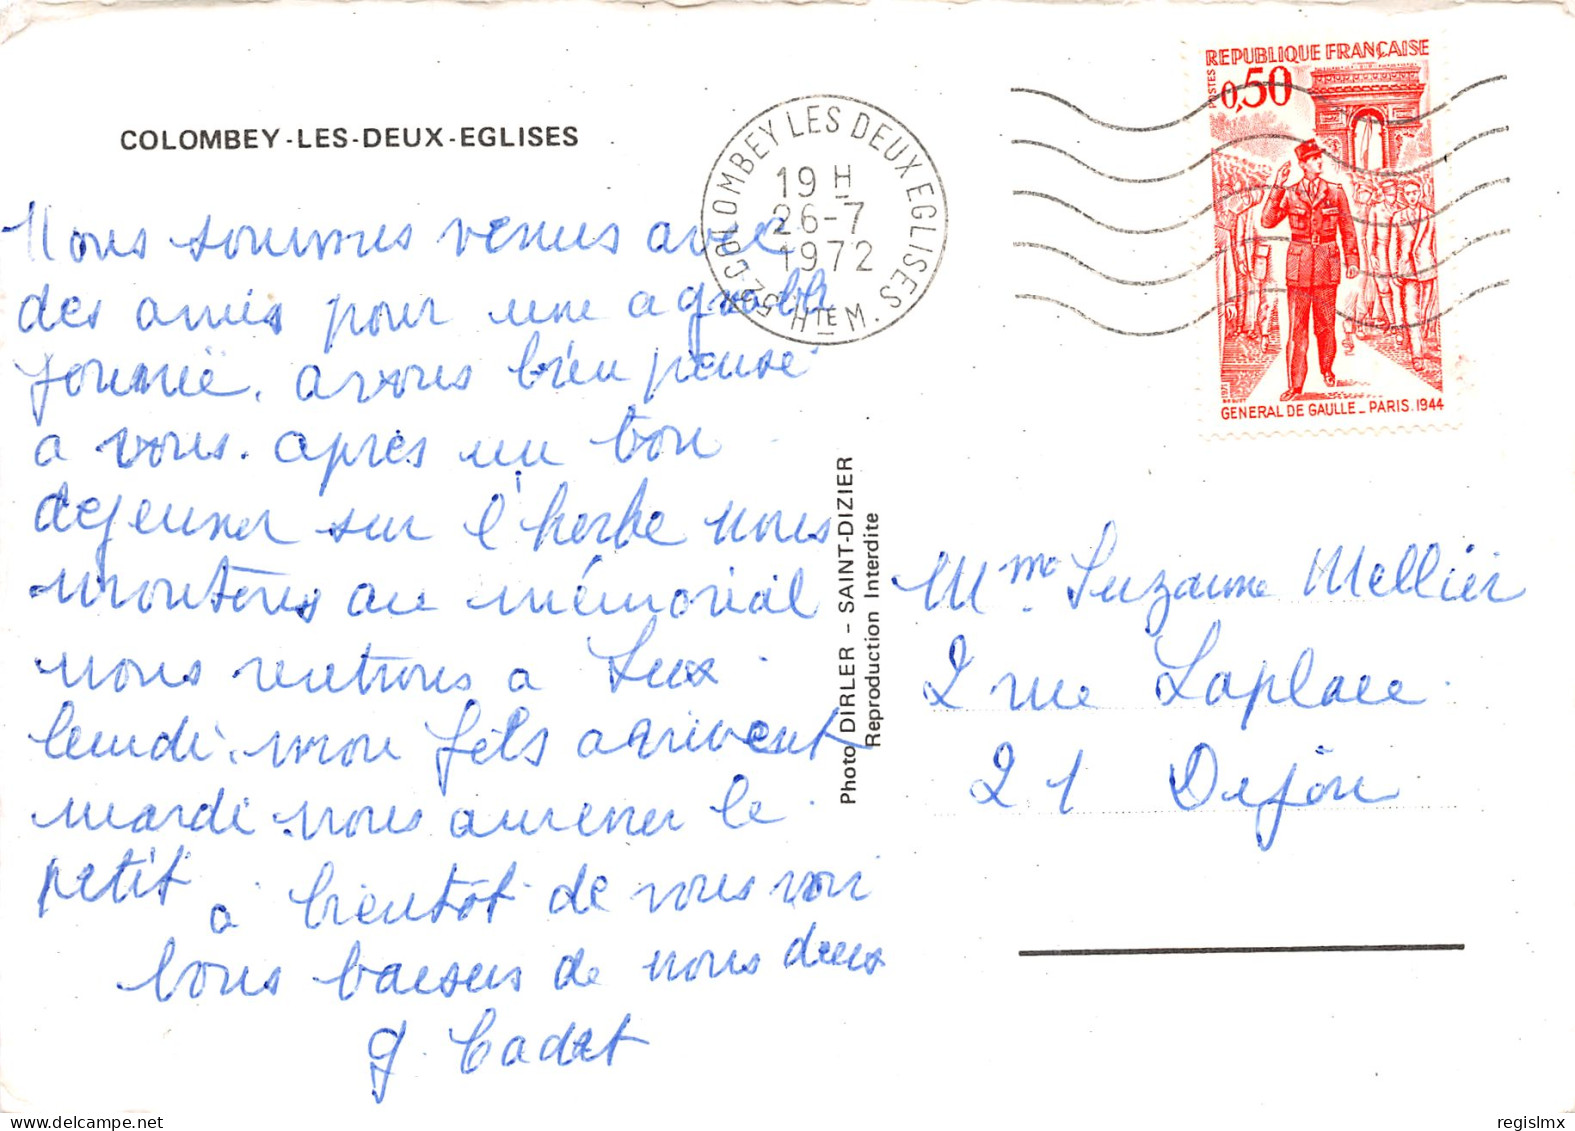 COLOMBEY-LES-DEUX-EGLISES
Nous sommes venus avec
des amis pour une agreable
journée. avons bien pensé
a vous. après un bon
dejeuner sur l'herbe nous
montons au mémorial
nous rentrons a Lux
lundi. mon fils arrivent
mardi nous amener le
petit
à bientôt de vous voir
bons baisers de nous deux
G. Cadet
Photo DIRLER - SAINT-DIZIER
Reproduction Interdite
COLOMBEY LES DEUX EGLISES
19 H
26-7
1972
52 HTE M.
REPUBLIQUE FRANÇAISE
POSTES
0,50
1971
GENERAL DE GAULLE_PARIS.1944
Mme Suzanne Mellier
2 rue Laplace
21 Dijon
regislmx